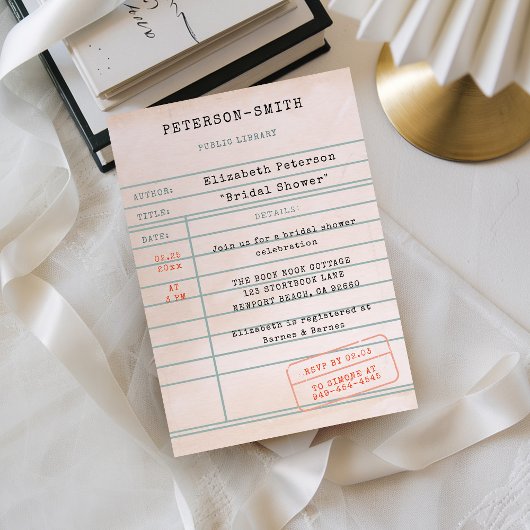 PETERSON-SMITH
PUBLIC LIBRARY
AUTHOR: Elizabeth Peterson
TITLE: "Bridal Shower"
DATE: DETAILS:
02.25
20xx
AT
6 PM
Join us for a bridal shower
celebration
THE BOOK NOOK COTTAGE
123 STORYBOOK LANE
NEWPORT BEACH, CA 92660
Elizabeth is registered at
Barnes & Barnes
RSVP BY 02.03
TO SIMONE AT
949-454-4545